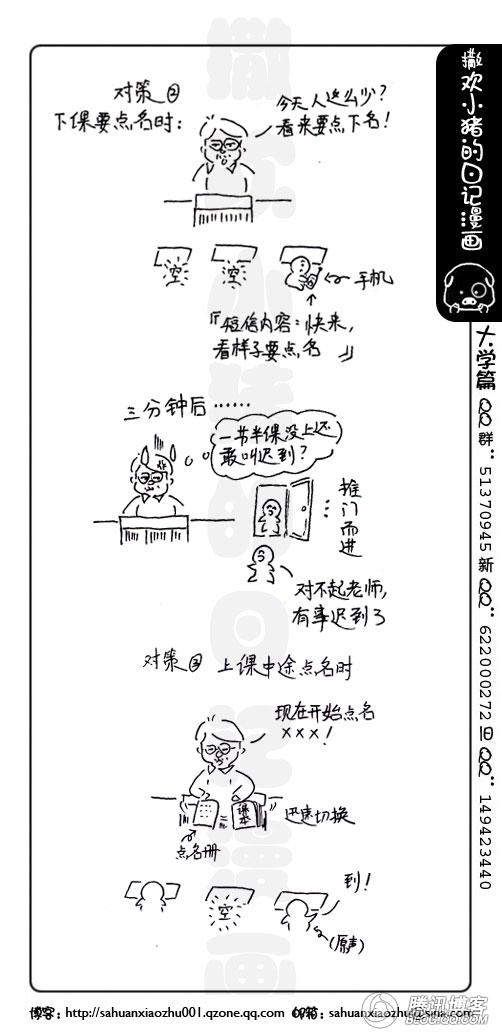 对策②
下课要点名时:
今天人这么少?
看来要点下名!
空
空
手机
『短信内容:快来,
看样子要点名』
三分钟后……
一节半课没上还
敢叫迟到?
推门而进
对不起老师,
有事迟到了
对策③ 上课中途点名时
现在开始点名
×××!
课本
迅速切换
点名册
空
到!
(原声)
撒欢小猪的日记漫画
大学篇
QQ群:51370945 新QQ:622000272 旧QQ:149423440
撒欢小猪的日记漫画
博客:http://sahuanxiaozhu001.qzone.qq.com 邮箱:sahuanxiaozhu@sina.com
腾讯博客
BLOG.QQ.COM